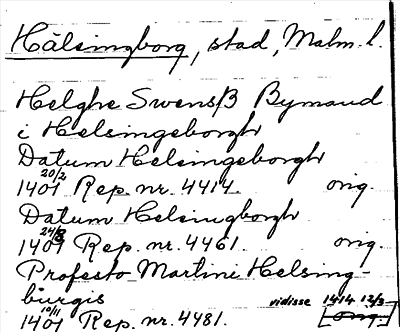 Hälsingborg, stad, Malm. l.
Helghe Swensß Bymand
i Helsingeborgh
Datum Helsingeborgh
1401 20/2 Rep. nr. 4414. orig.
Datum Helsingborgh
1401 24/8 Rep. nr. 4461. orig.
Profesto Martini Helsing-
burgis vidisse 1414 12/3
1401 10/11 Rep. nr. 4481. [orig.]